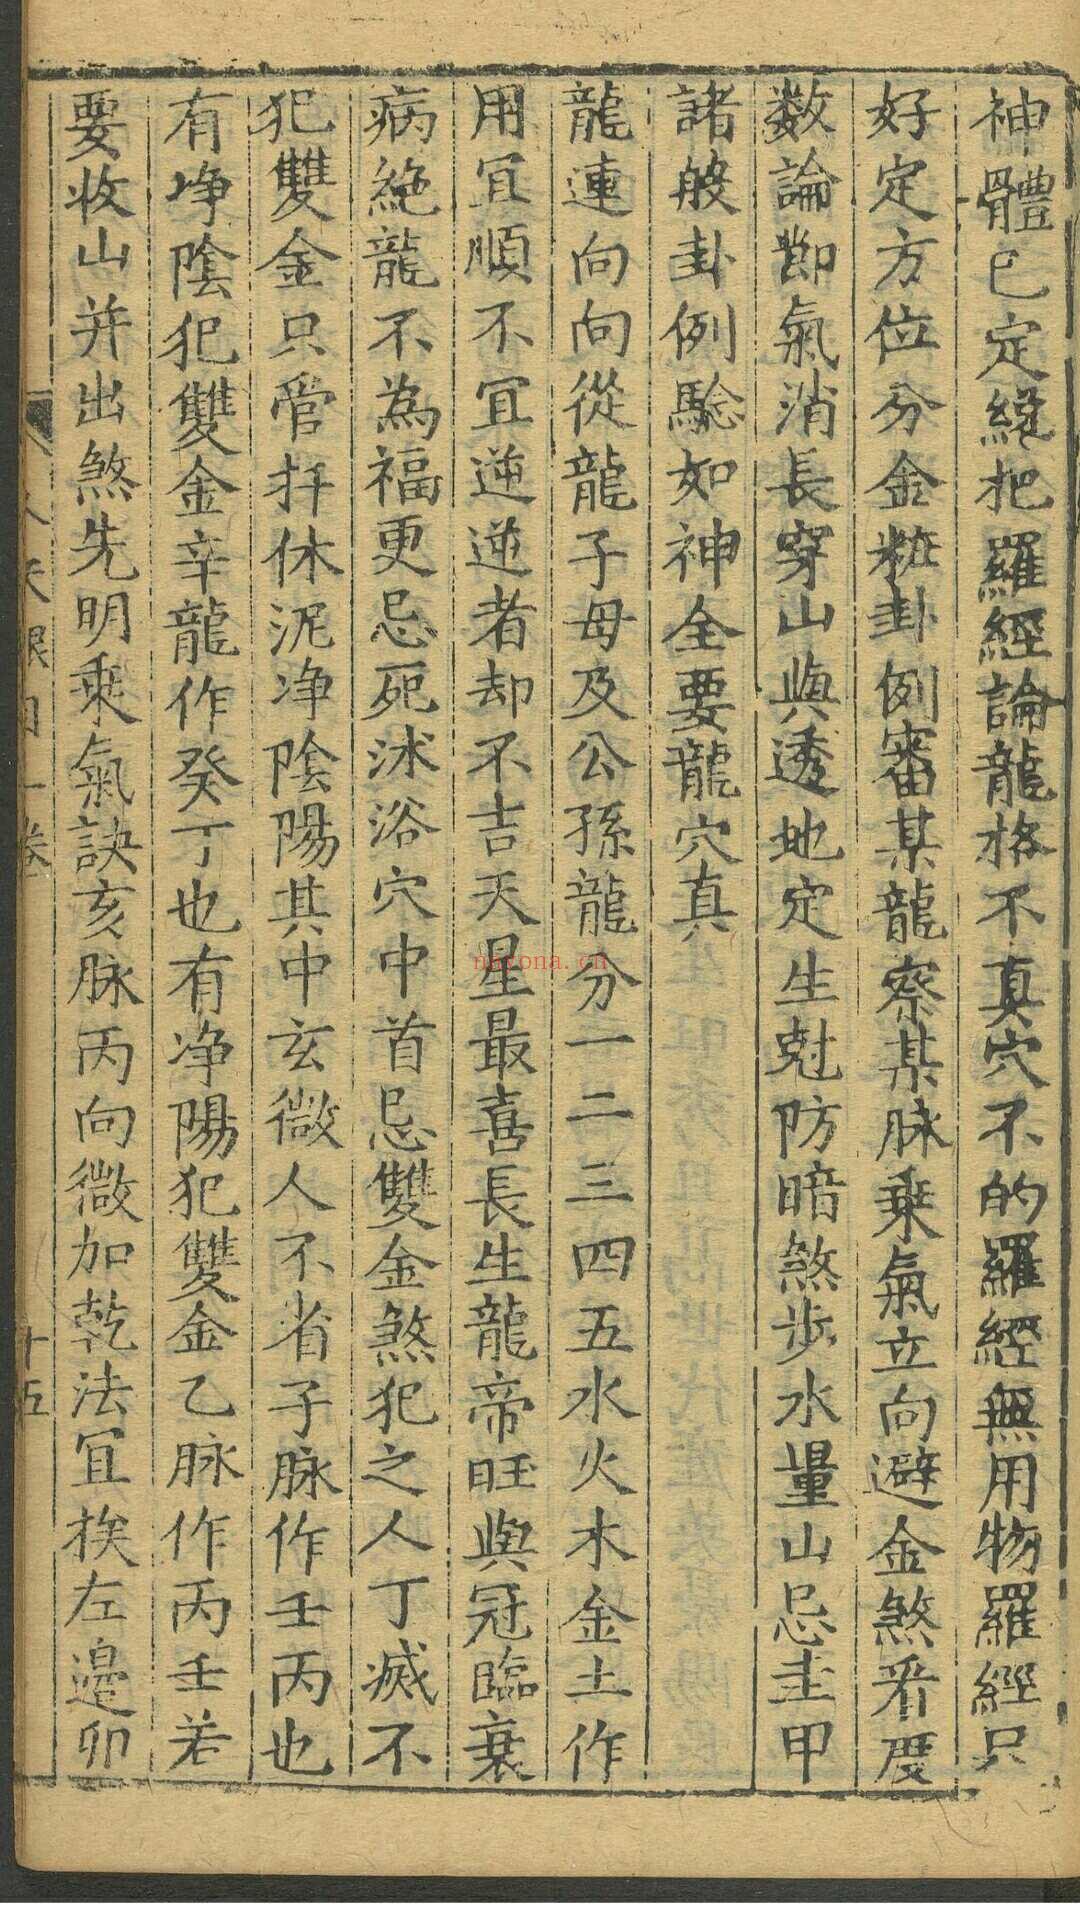 神體已定纔把羅經論龍格不真穴不的羅經無用物羅經只
好定方位分金粧卦例審某龍察某脉乗氣立向避金煞看度
数論節氣消長穿山與透地定生尅防暗煞步水量山忌圭甲
諸般卦例騐如神全要龍穴真
龍連向向從龍子母及公孫龍分一二三四五水火木金土作
用冝順不冝逆逆者却不吉天星最喜長生龍帝旺與冠臨衰
病絶龍不為福更忌死沭浴穴中首忌雙金煞犯之人丁滅不
犯雙金只管扦休泥净陰陽其中玄微人不省子脉作壬丙也
有净陰犯雙金辛龍作癸丁也有净陽犯雙金乙脉作丙壬若
要收山并出煞先明乗氣訣亥脉丙向微加乾法冝挨左邉卯
眼目一卷
十五
nhyona.cn